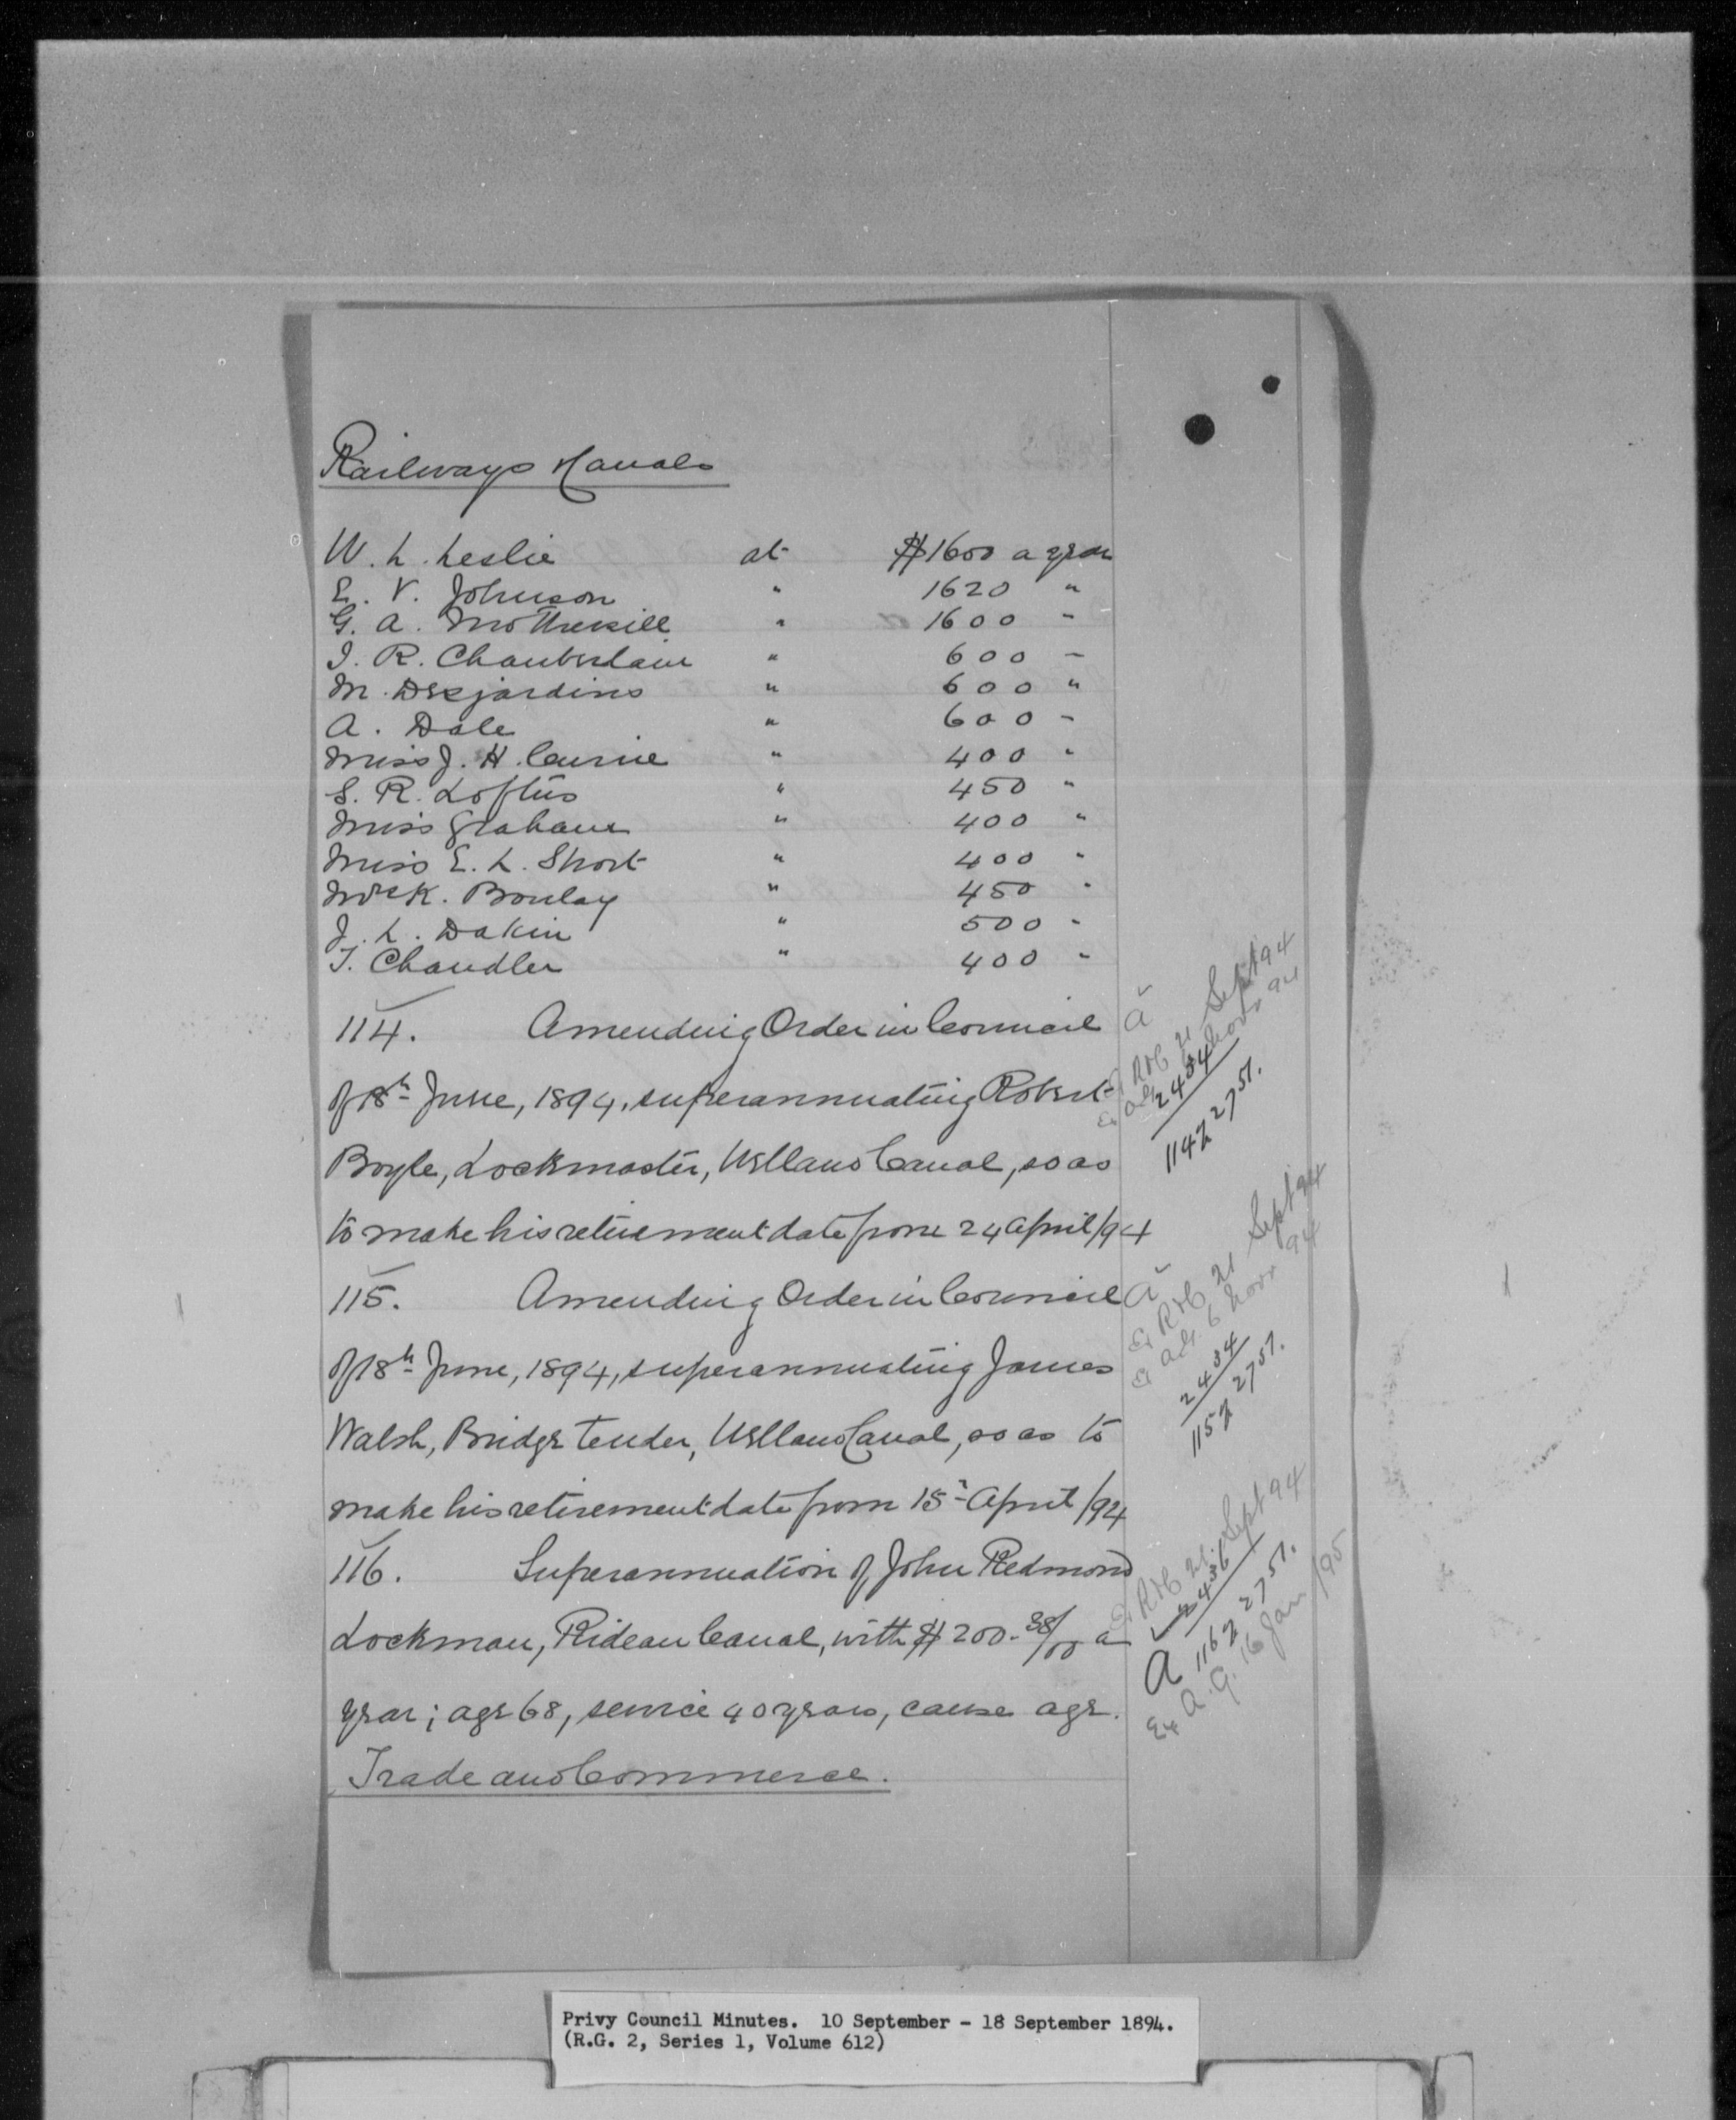 Railways & Canals
W. L. Leslie at $1600 a year
E. V. Johnson " 1620 "
G. A. Mothersill " 1600 "
J. R. Chamberlain " 600 "
M. Desjardins " 600 "
A. Dale " 600 "
Miss J. H. Currie " 400 "
S. R. Loftus " 450 "
Miss Graham " 400 "
Miss E. L. Short " 400 "
K. Boulay " 450 "
J. L. Dakin " 500 "
T. Chandler " 400 "
114. Amending Order in Council
of 18th June, 1894, superannuating Robert
Boyle, Lockmaster, Welland Canal, so as
to make his retirement date from 24 April/94
115. Amending Order in Council
of 18th June, 1894, superannuating James
Walsh, Bridge tender, Welland Canal, so as to
make his retirement date from 15th April/94
116. Superannuation of John Redmond
Lockman, Rideau Canal, with $200.38/00 a
year; age 68, service 40 years, cause age.
Trade and Commerce.
a
Ex R&C 21 Sept 94
Ex A.G. 6 Novr 94
2434
114 g 2751.
a
Ex R&C 21 Sept 94
Ex A.G. 6 Novr 94
2434
115 g 2751.
Ex R&C 21 Sept 94
2436
116 g 2751.
a
Ex A.G. 16 Jan/95
Privy Council Minutes. 10 September - 18 September 1894.
(R.G. 2, Series 1, Volume 612)